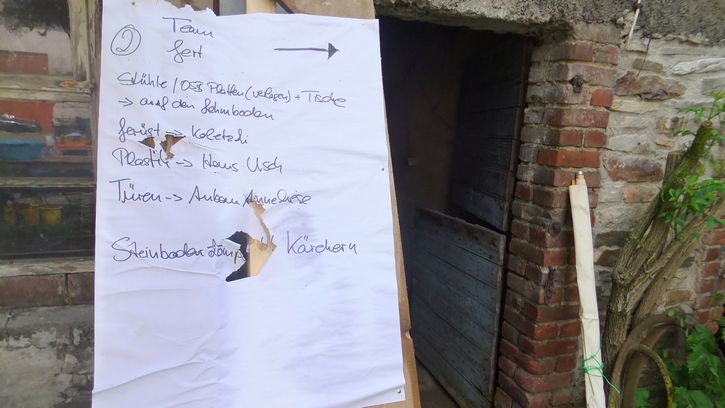 2 Team
Gert
Stühle / OSB Platten (verlegen) + Tische
→ auf den Lehmboden
Gerüst → Koletzki
Plastik → Haus Usch
Türen → Anbau Anneliese
Steinboden Kärchern